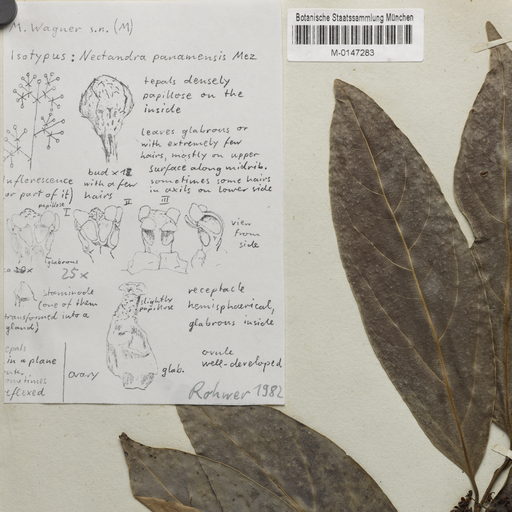 M. Wagner s.n. (M)
Isotypus: Nectandra panamensis Mez
tepals densely
papillose on the
inside
leaves glabrous or
with extremely few
hairs, mostly on upper
surface along midrib.
sometimes some hairs
in axils on lower side
Inflorescence
(or part of it)
bud x
with a few
hairs
papillose
I
II
III
view
from
side
glabrous
25 x
Staminode
(one of them
transformed into a
gland)
slightly
papillose
receptacle
hemisphaerical,
glabrous inside
in a plane
sometimes
reflexed
ovary
glab.
ovule
well-developed
Rohwer 1982
Botanische Staatssammlung München
M-0147283